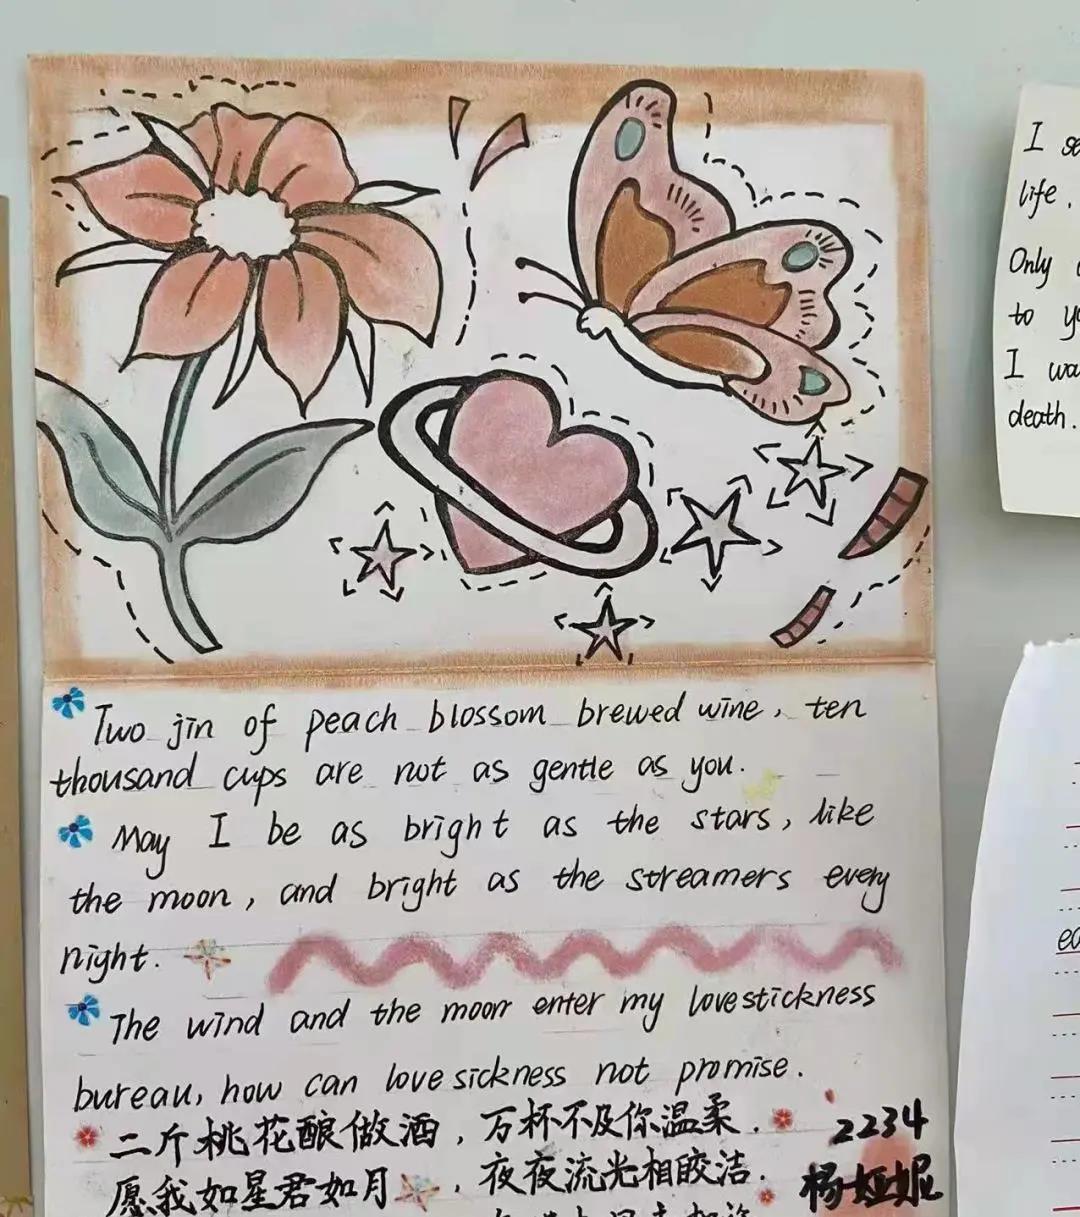 Two jin of peach blossom brewed wine, ten
thousand cups are not as gentle as you.
May I be as bright as the stars, like
the moon, and bright as the streamers every
night.
The wind and the moon enter my lovestickness
bureau, how can love sickness not promise.
二斤桃花酿做酒，万杯不及你温柔.
愿我如星君如月，夜夜流光相皎洁.
2234
杨娅妮
I
life.
Only
to
I
death.